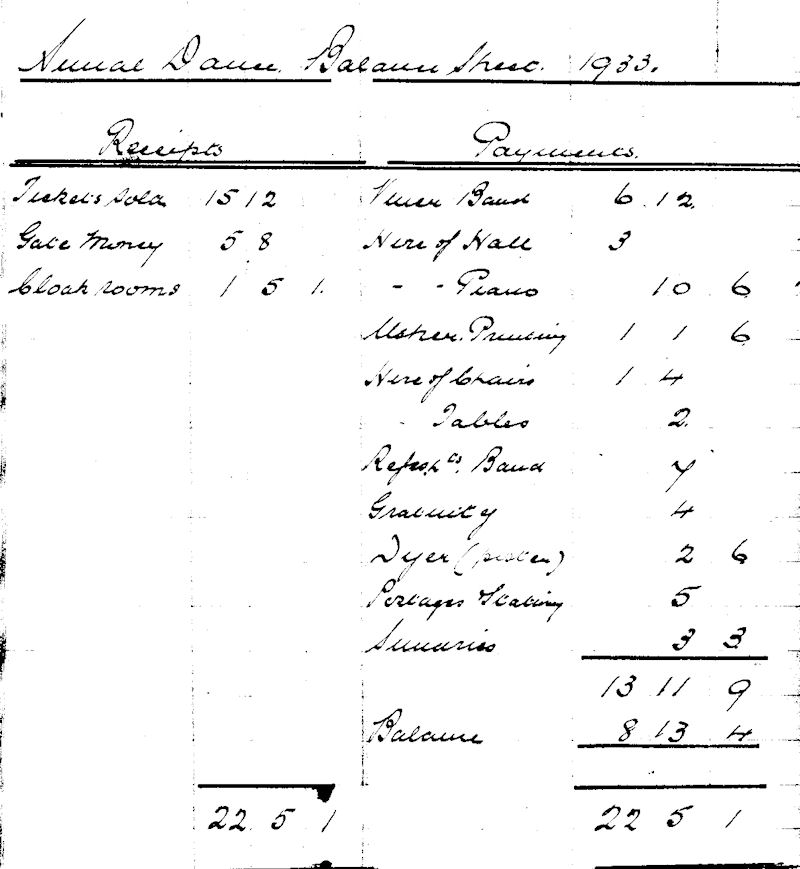 Annual Dance. Balance Sheet. 1933.
Receipts
Payments.
Tickets sold 15 12
Gate Money 5 8
Cloak rooms 1 5 1
Band 6 12
Hire of Hall 3
" " Piano 10 6
Usher. Printing 1 1 6
Hire of Chairs 1 4
" Tables 2
Refresh ts. Band 7
Gratuity 4
Dyer (poster) 2 6
Postages Staty 5
Sundries 3 3
13 11 9
Balance 8 13 4
22 5 1
22 5 1